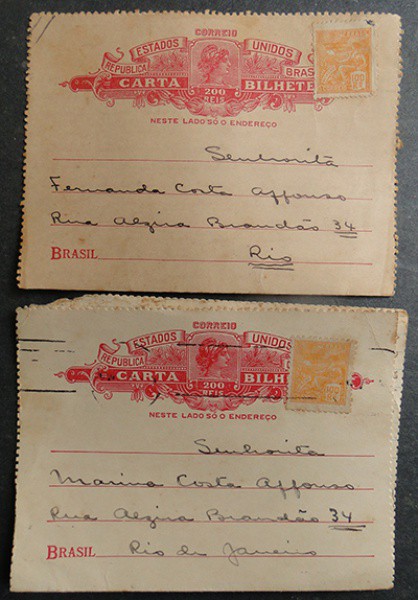 CORREIO
ESTADOS UNIDOS
REPUBLICA BRAS
CARTA BILHETE
200
REIS
NESTE LADO SÓ O ENDEREÇO
Senhorita
Fernanda Costa Affonso
Rua Alzira Brandão 34
BRASIL Rio
CORREIO
ESTADOS UNIDOS
REPUBLICA
CARTA BILH
200
REIS
NESTE LADO SÓ O ENDEREÇO
Senhorita
Marina Costa Affonso
Rua Alzira Brandão 34
BRASIL Rio de Janeiro